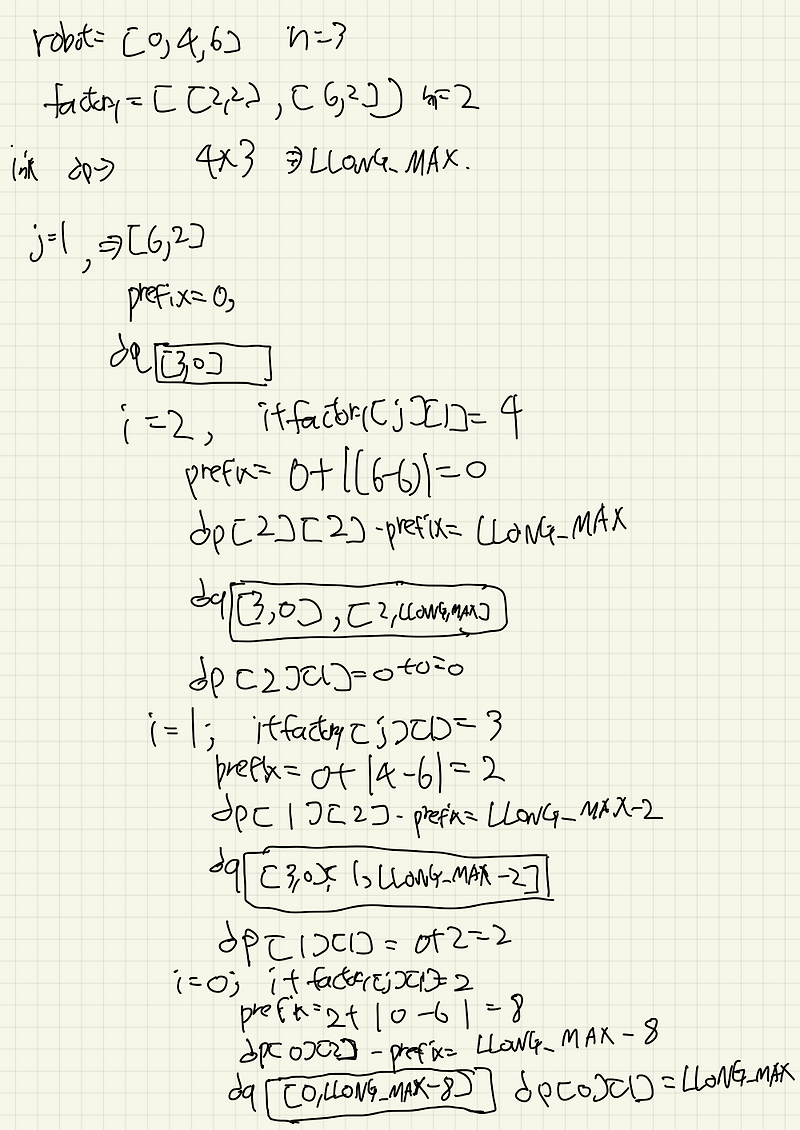 robot= [0,4,6] n=3
factory = [[2,2], [6,2]] m=2
init dp→ 4×3 ⇒ LLONG_MAX.
j=1, ⇒[6,2]
prefix=0,
dq [3,0]
i=2, i+factory[j][1]=4
prefix= 0+|(6-6)|=0
dp[2][2]-prefix= LLONG_MAX
dq [3,0], [2,LLONG_MAX]
dp[2][1]=0+0=0
i=1; i+factory[j][1]=3
prefix= 0+|4-6|=2
dp[1][2]-prefix= LLONG_MAX-2
dq [3,0][1,LLONG_MAX-2]
dp[1][1]= 0+2=2
i=0; i+factory[j][1]=2
prefix=2+|0-6|=8
dp[0][2]-prefix= LLONG_MAX-8
dq [0,LLONG_MAX-8] dp[0][1]=LLONG_MAX